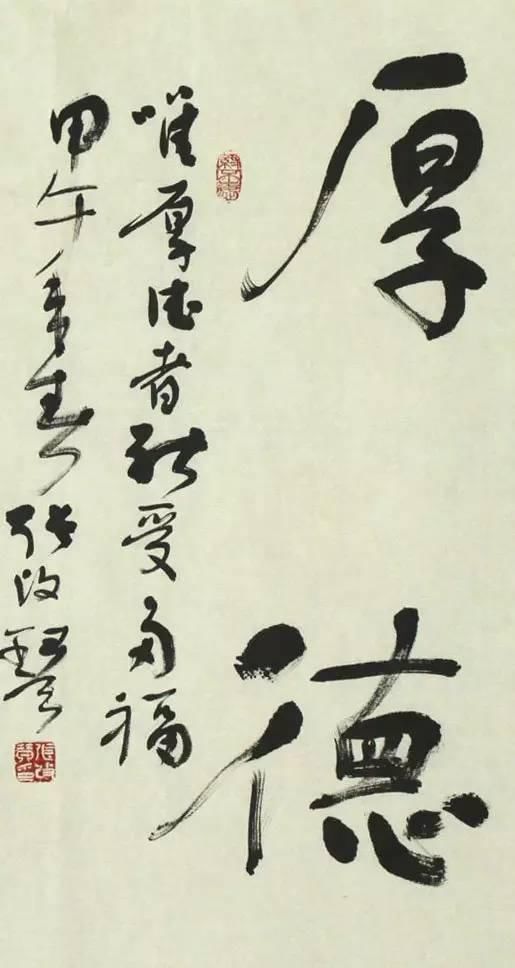 厚德
唯厚德者能受多福
甲午年春 张改琴